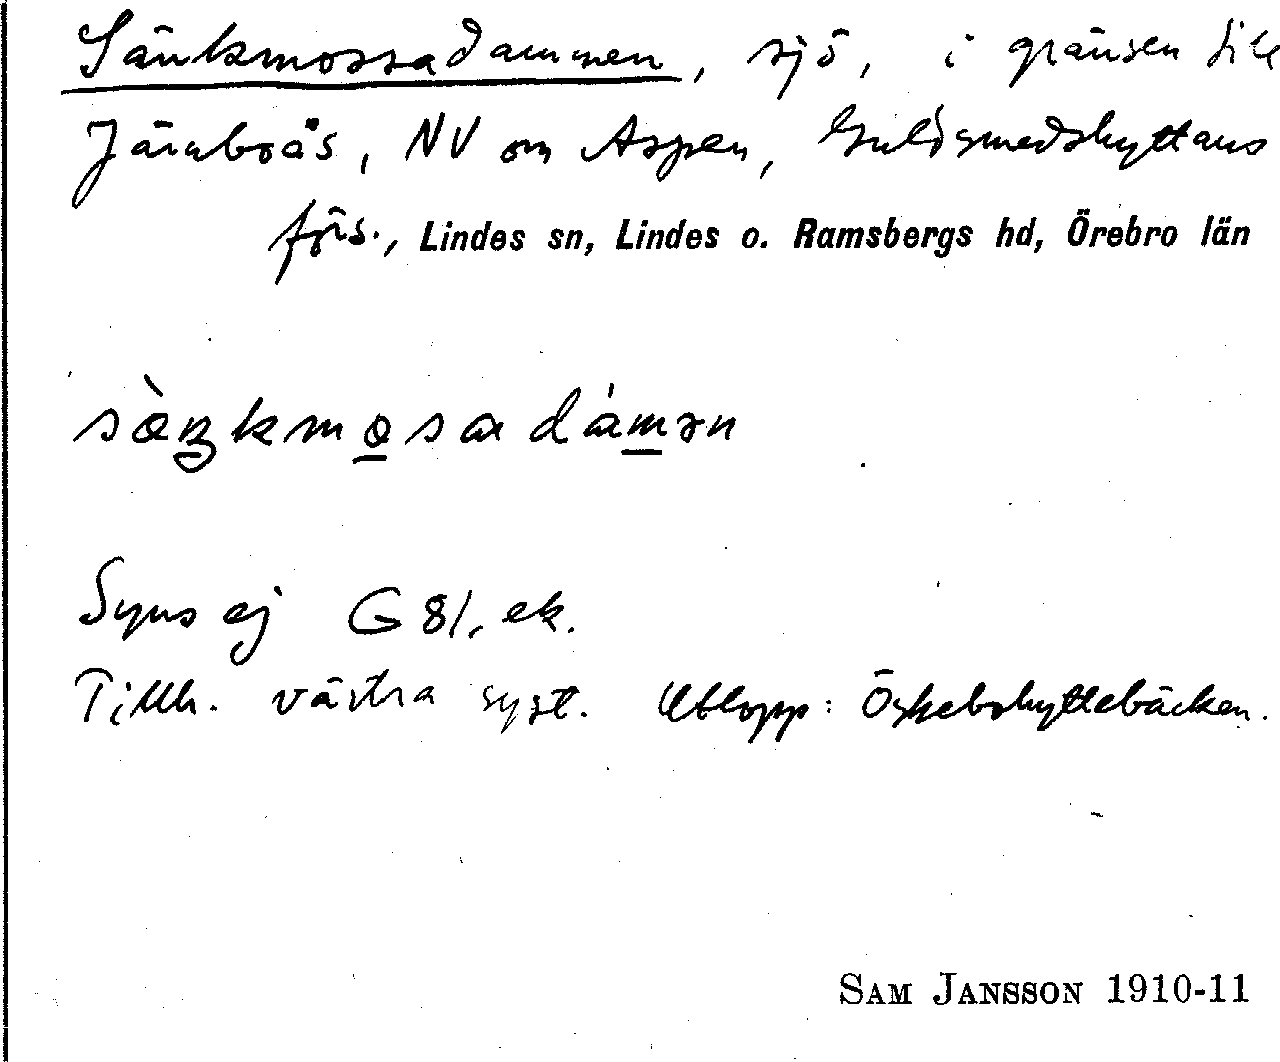 Sänkmossadammen, sjö, i gränsen till
Järnboås, NV om Aspen, Guldsmedshyttans
förs., Lindes sn, Lindes o. Ramsbergs hd, Örebro län
sæ̀ŋkmo̲sadàm̲ən
Syns ej G 81, ek.
Tillh. västra syst. Utlopp: Öskebohyttebäcken.
SAM JANSSON 1910-11